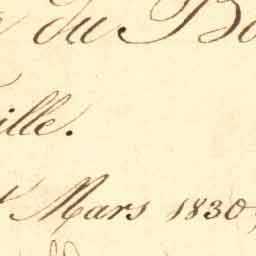 du Bo
ille.
Mars 1830,